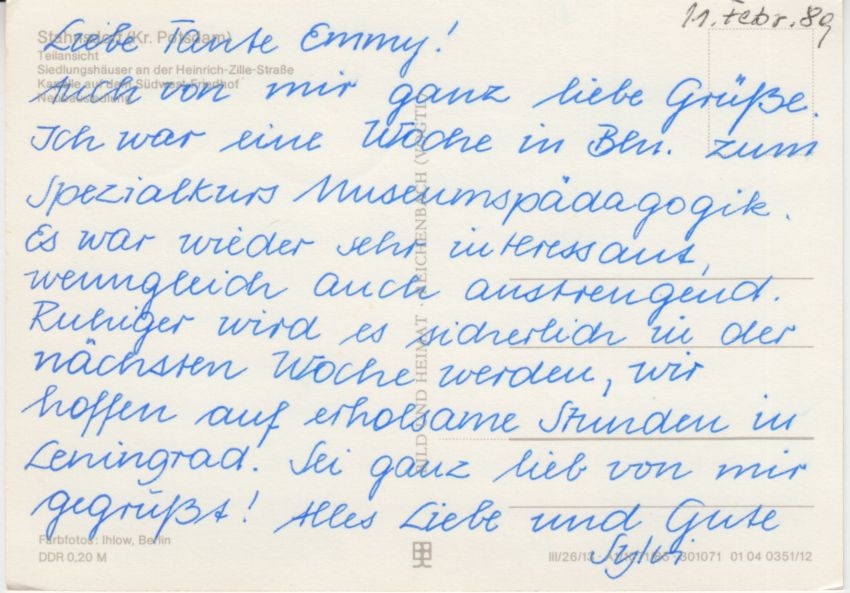 11. Febr. 89
Stahnsdorf (Kr. Potsdam)
Teilansicht
Siedlungshäuser an der Heinrich-Zille-Straße
Kapelle auf dem Südwest-Friedhof
Liebe Tante Emmy!
Auch von mir ganz liebe Grüße.
Ich war eine Woche in Bln. zum
Spezialkurs Museumspädagogik.
Es war wieder sehr interessant,
wenngleich auch anstrengend.
Ruhiger wird es sicherlich in der
nächsten Woche werden, wir
hoffen auf erholsame Stunden in
Leningrad. Sei ganz lieb von mir
gegrüßt! Alles Liebe und Gute
Sylvi
BILD UND HEIMAT · REICHENBACH (VOGTL)
Farbfotos: Ihlow, Berlin
DDR 0,20 M
III/26/13 · 301071 01 04 0351/12